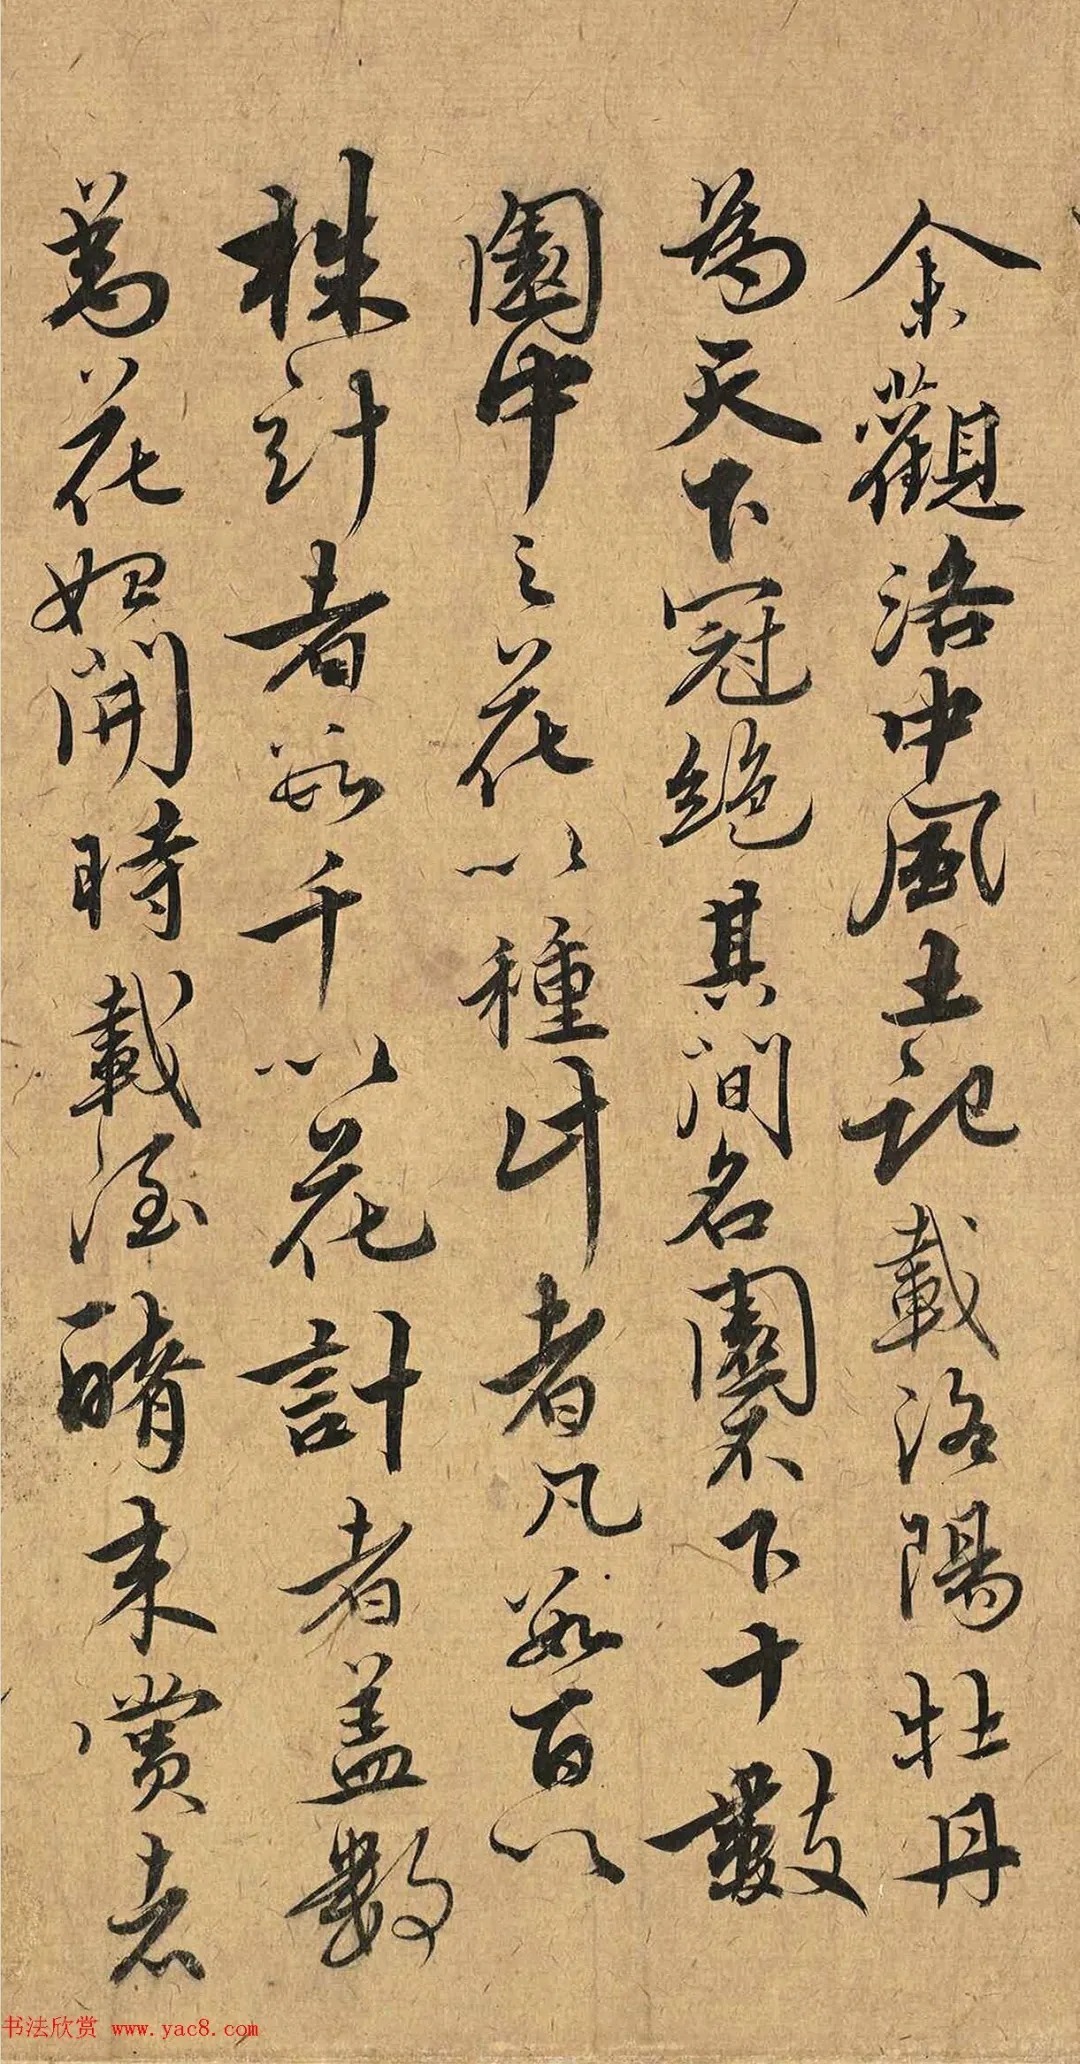 余觀洛中風土記載洛陽牡丹
為天下冠絕其間名園不下十數
園中之花以種計者凡數百以
株計者數千以花計者蓋數
萬花始開時載酒來賞者
书法欣赏 www.yac8.com